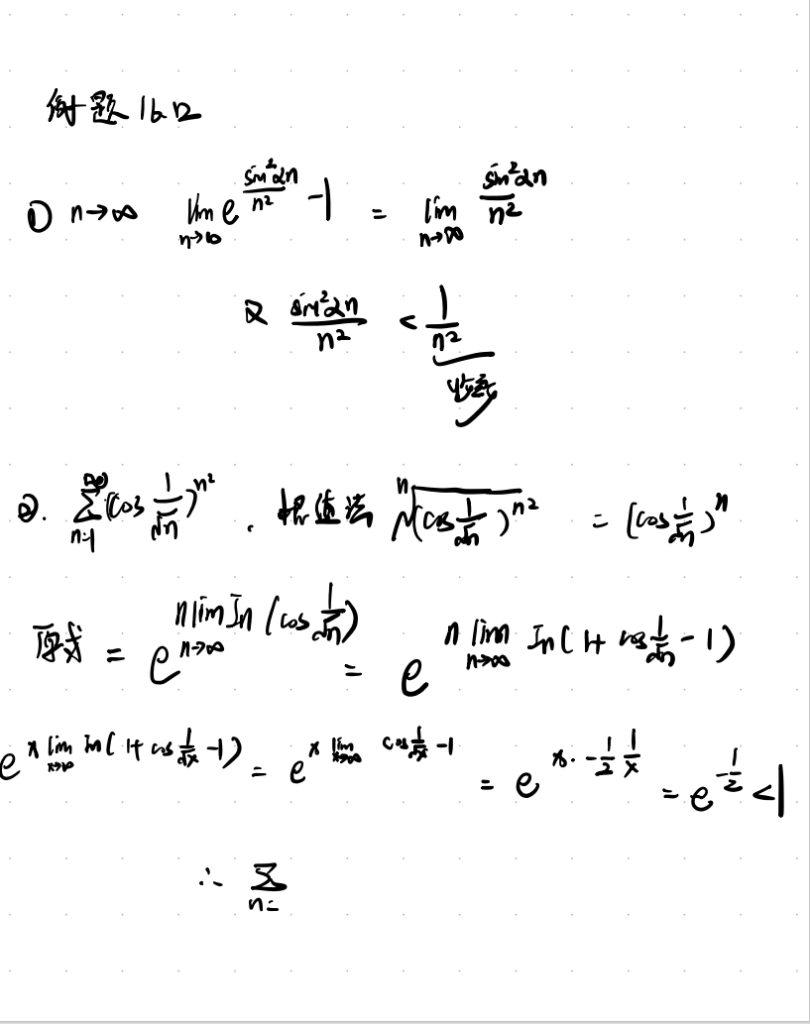 例题 16.12
① n→∞ lim_{n→∞} e^{\frac{sin²αn}{n²}} -1 = lim_{n→∞} \frac{sin²αn}{n²}
又 \frac{sin²αn}{n²} < \frac{1}{n²} 收敛
②. \sum_{n=1}^{∞} (cos \frac{1}{\sqrt{n}})^{n²} . 根值法 \sqrt[n]{(cos \frac{1}{\sqrt{n}})^{n²}} = [cos \frac{1}{\sqrt{n}}]^n
原式 = e^{n lim_{n→∞} ln (cos \frac{1}{\sqrt{n}})} = e^{n lim_{n→∞} ln(1+cos \frac{1}{\sqrt{n}} -1)}
e^{x lim_{x→∞} ln(1+cos \frac{1}{\sqrt{x}} -1)} = e^{x lim_{x→∞} cos \frac{1}{\sqrt{x}} -1} = e^{x·-\frac{1}{2}\frac{1}{x}} = e^{-\frac{1}{2}} < 1
∴ \sum_{n=}